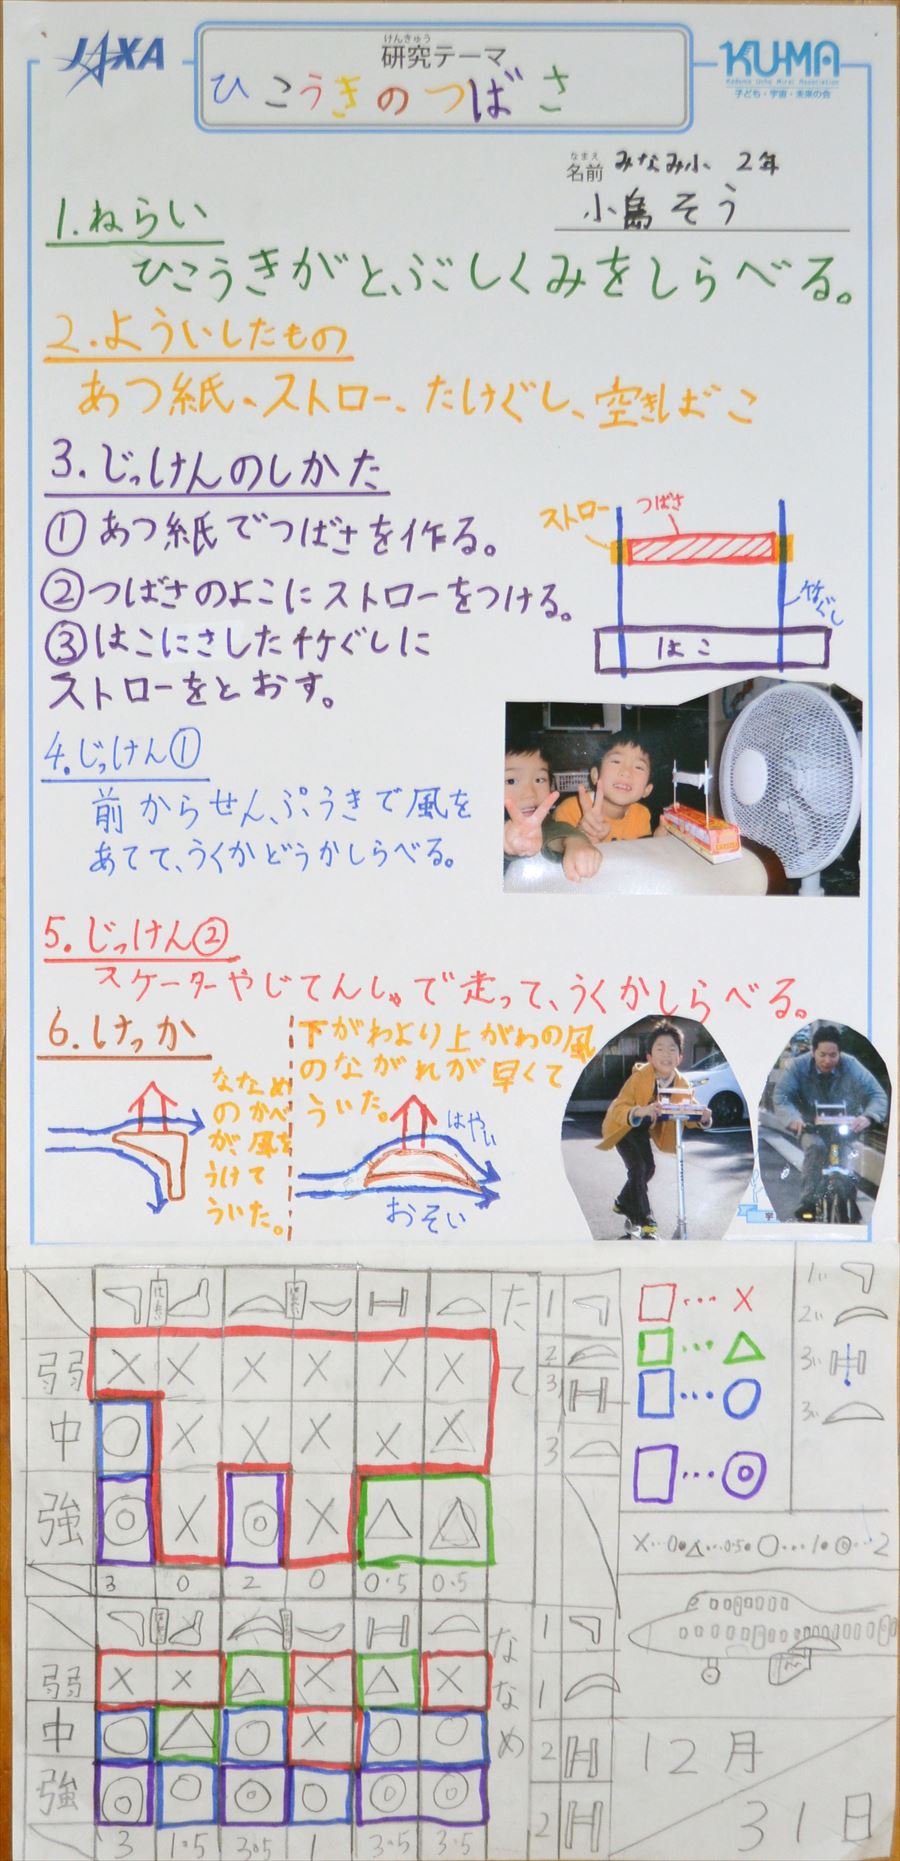 JAXA
けんきゅう
研究テーマ
ひこうきのつばさ
KU-MA
Kodomo Uchu Mirai Association
子ども・宇宙・未来の会
なまえ
名前 みなみ小 2年
小島そう
1.ねらい
ひこうきがとぶしくみをしらべる。
2.よういしたもの
あつ紙、ストロー、たけぐし、空きばこ
3.じっけんのしかた
①あつ紙でつばさを作る。
②つばさのよこにストローをつける。
③はこにさした竹ぐしに
ストローをとおす。
ストロー
つばさ
竹ぐし
はこ
4.じっけん①
前からせんぷうきで風を
あてて、うくかどうかしらべる。
5.じっけん②
スケーターやじてんしゃで走って、うくかしらべる。
6.けっか
ななめ
のかべ
が風を
うけて
ういた。
下がわより上がわの風
のながれが早くて
ういた。
はやい
おそい
たて
弱 × × × × × ×
中 ○ × × × × ×
強 ◎ × ◎ × △ △
3 0 2 0 0.5 0.5
1
2
3
3
□…×
□…△
□…○
□…◎
1い
2い
3い
3い
×…0・△…0.5・○…1・◎…2
ななめ
弱 × × △ × △ ×
中 ○ △ ○ × ○ ○
強 ◎ ○ ◎ ○ ◎ ◎
3 1.5 3.5 1 3.5 3.5
1
1
2
2
12月
31日